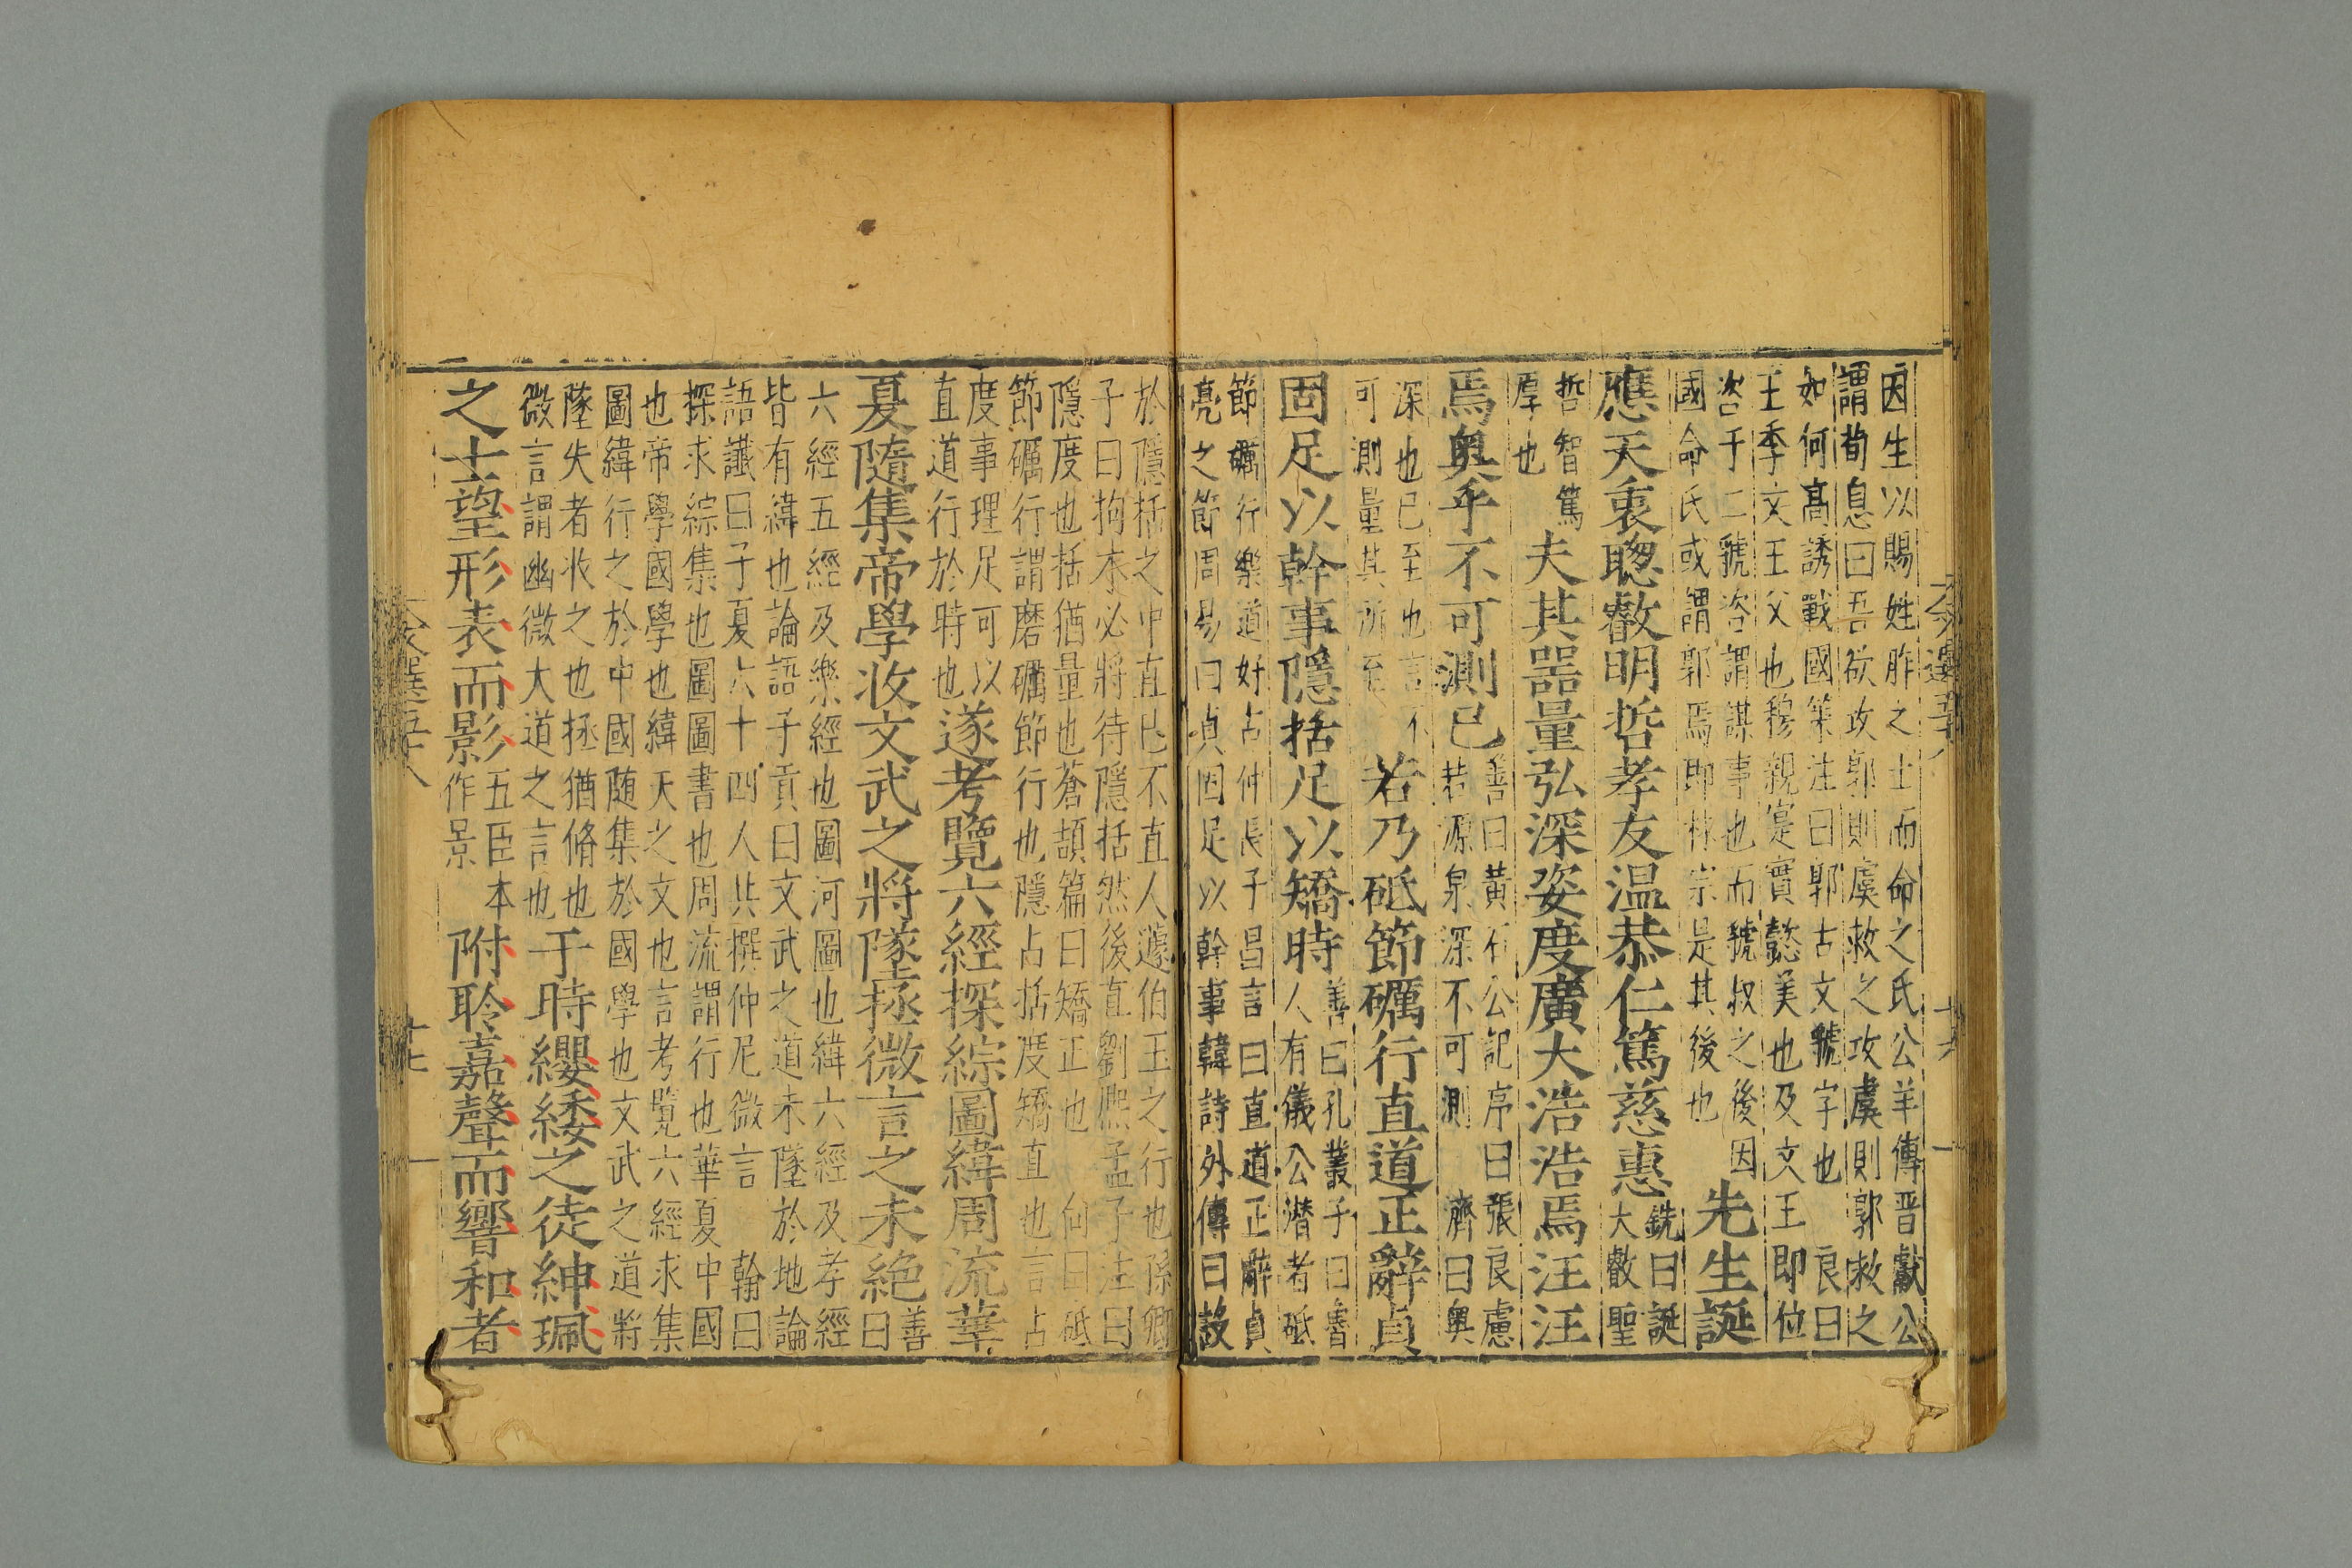 因生以賜姓胙之土而命之氏公羊傳晉獻公
謂荀息曰吾欲攻郭則虞救之攻虞則郭救之
如何高誘戰國策注曰郭古文虢字也 良曰
王季文王父也穆親寔實懿美也及文王即位
咨于二虢咨謂謀事也而虢叔之後因
國命氏或謂郭焉即林宗是其後也
先生誕
應天衷聰叡明哲孝友温恭仁篤慈惠
銑曰誕
大叡聖
哲智篤
厚也
夫其器量弘深姿度廣大浩浩焉汪汪
焉奥乎不可測已
善曰黃石公記序曰張良慮
若源泉深不可測 濟曰奥
深也已至也言不
可測量其所至
若乃砥節礪行直道正辭貞
固足以幹事隱括足以矯時
善曰孔叢子曰魯
人有儀公潜者砥
節礪行樂道好占仲長子昌言曰直道正辭貞
亮之節周易曰貞固足以幹事韓詩外傳曰設
於隱括之中直己不直人蘧伯玉之行也孫卿
子曰拘木必將待隱括然後直劉熙孟子注曰
隱度也括猶量也蒼頡篇曰矯正也 向曰砥
節礪行謂磨礪節行也隱占括度矯直也言占
度事理足可以
直道行於時也
遂考覽六經探綜圖緯周流華
夏隨集帝學收文武之將墜拯微言之未絶
善
曰
六經五經及樂經也圖河圖也緯六經及孝經
皆有緯也論語子貢曰文武之道未墜於地論
語讖曰子夏六十四人共撰仲尼微言 翰曰
探求綜集也圖圖書也周流謂行也華夏中國
也帝學國學也緯天之文也言考覽六經求集
圖緯行之於中國随集於國學也文武之道將
墜失者收之也拯猶脩也
微言謂幽微大道之言也
于時纓緌之徒紳珮
之士望形表而影
五臣本
作景
附聆嘉聲而響和者
文選五十八
十七